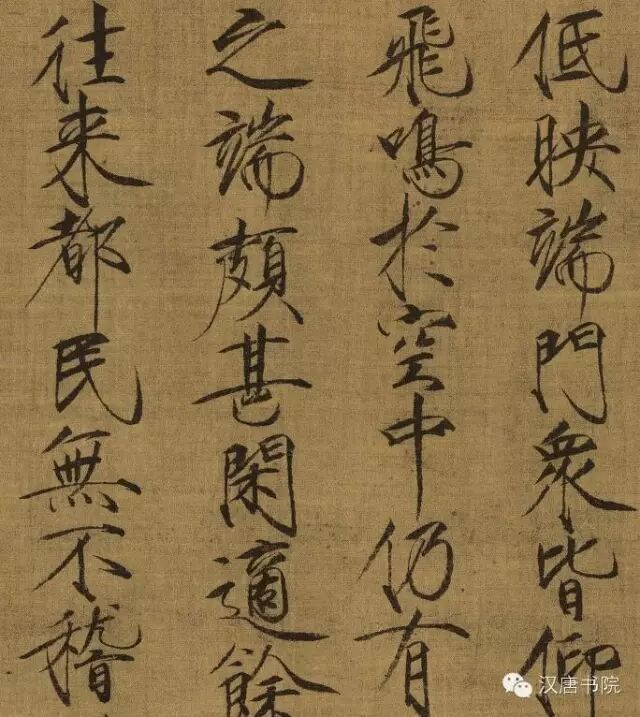 低映端門衆皆仰
飛鳴於空中仍有
之端頗甚閑適餘
往来都民無不稽
汉唐书院